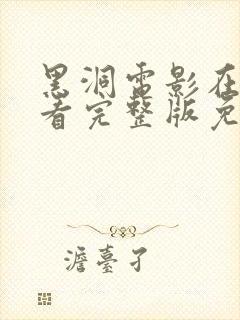 黑洞电影在
看完整版免
澹臺孑